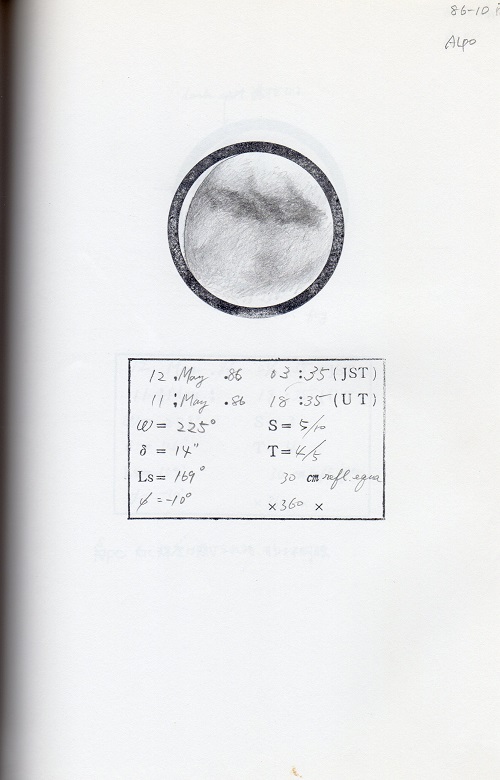 86-10
Alpo
12 . May . 86 03 : 35 (JST)
11 : May . 86 18 : 35 (UT)
ω = 225° S = 5/10
δ = 14" T = 4/5
Ls = 169° 30 cm refl. equa
φ = -10° ×360 ×